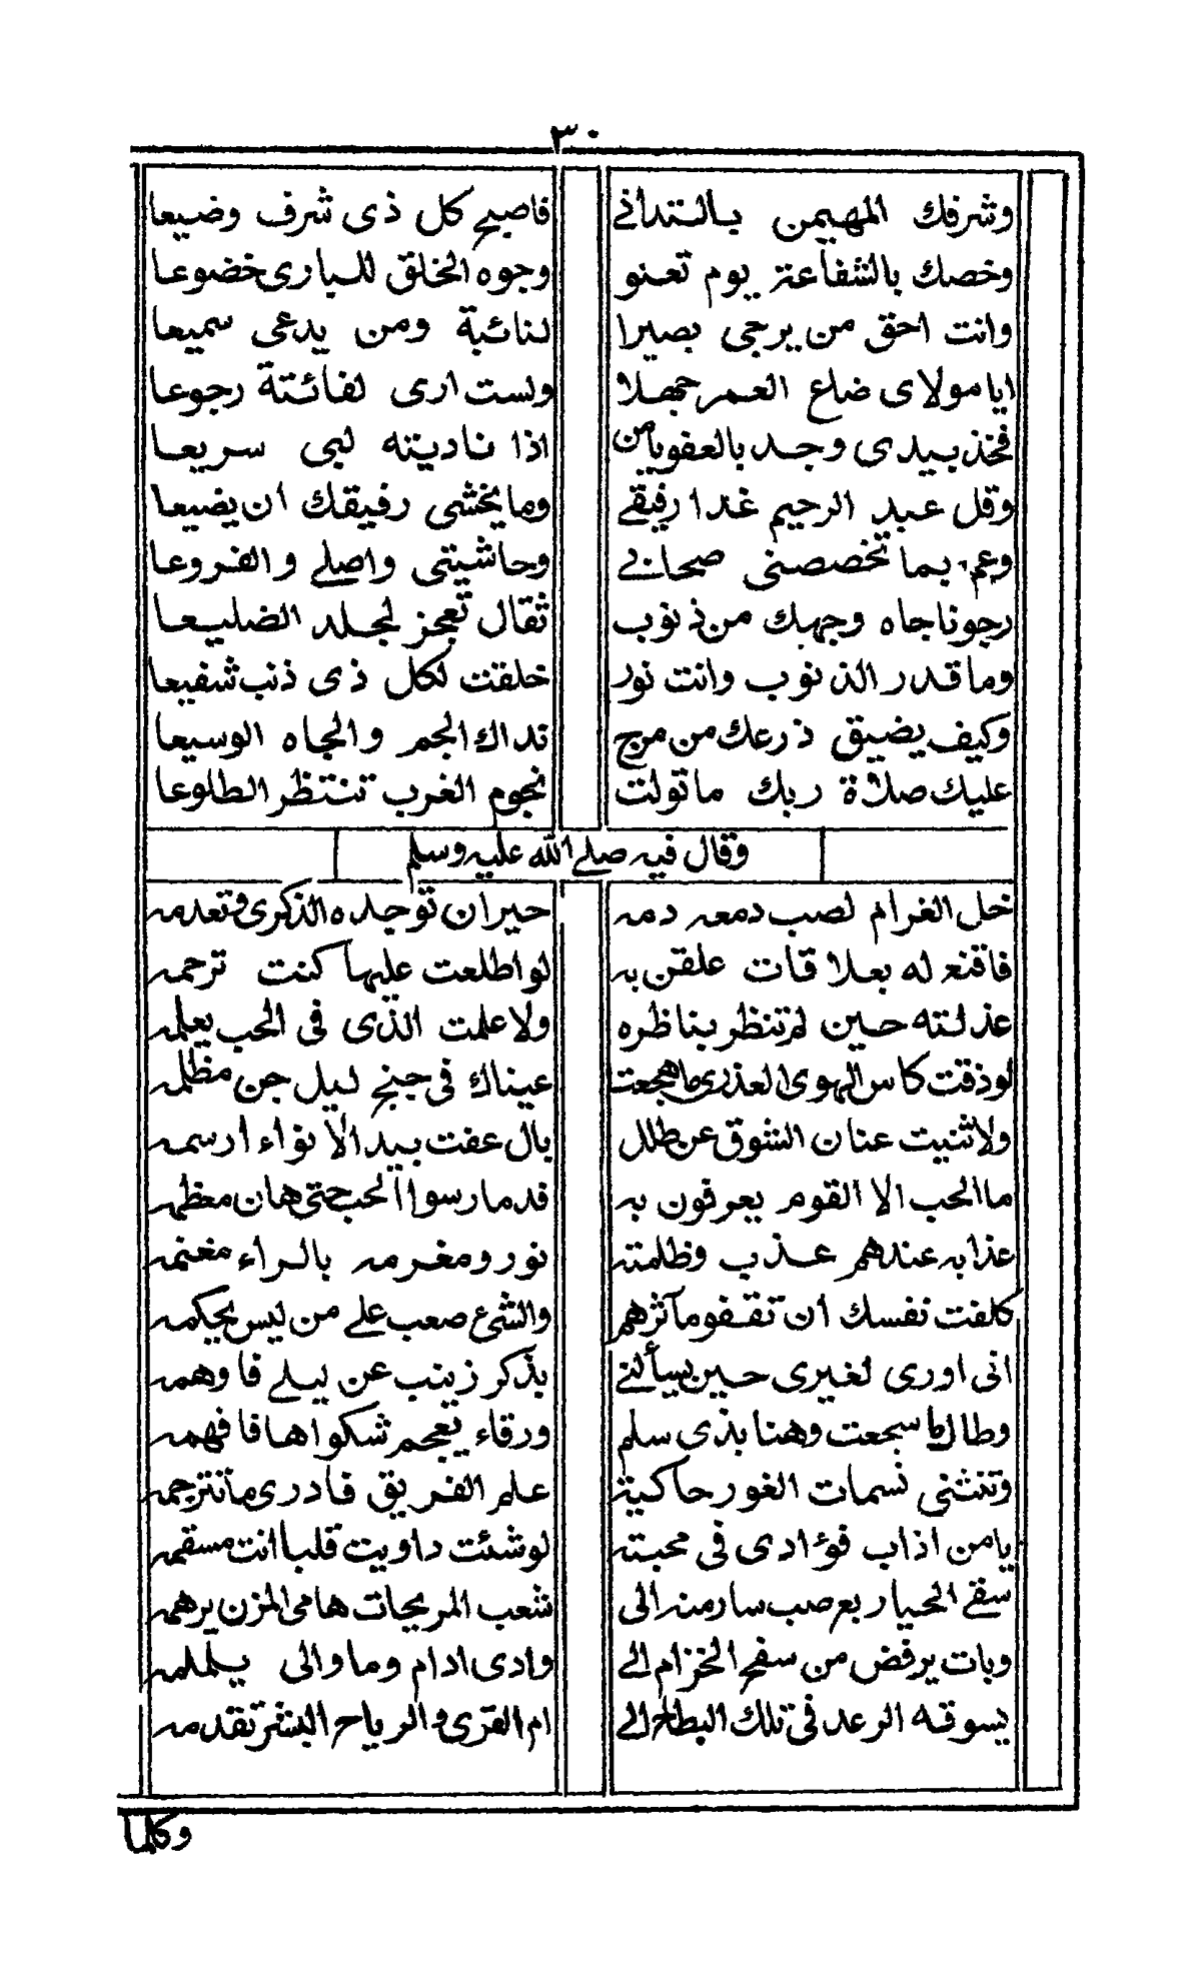 ٣٠
وشرفك المهيمن بالتدانے فاصبح كل ذى شرف وضيعا
وخصك بالشفاعة يوم تعنو وجوه الخلق للبارى خضوعا
وانت احق من يرجى بصيرا لنائبة ومن يدعى سميعا
ايا مولاى ضاع العمر جهلا ولست ارى لفائتة رجوعا
فخذ بيدى وجد بالعفو يامن اذا ناديته لبى سريعا
وقل عبد الرحيم غدا رفيقے وما يخشى رفيقك ان يضيعا
وعم بما تخصصنى صحابے وحاشيتى واصلے والفروعا
رجونا جاه وجهك من ذنوب ثقال تعجز لجلد الضليعا
وما قدر الذنوب وانت نور خلقت لكل ذى ذنب شفيعا
وكيف يضيق ذرعك من مرج نداك الجم والجاه الوسيعا
عليك صلاة ربك ما تولت نجوم الغرب تنتظر الطلوعا
وقال فيه صلے الله عليه وسلم
خل الغرام لصب دمعه دمه حيران توجده الذكرى وتعدمه
فاقنع له بعلاقات علقن به لو اطلعت عليها كنت ترحمه
عذلته حين لم تنظر بناظره ولا علمت الذى فى الحب يعلمه
لو ذقت كاس الهوى العذرى ما هجعت عيناك فى جنح ليل جن مظلمه
ولا ثنيت عنان الشوق عن طلل بال عفت بيد الانواء ارسمه
ما الحب الا القوم يعرفون به قد مارسوا الحب حتى هان معظمه
عذابه عندهم عذب وظلمته نور ومغرمه بالراء مغنمه
كلفت نفسك ان تقفو مآثرهم والشئ صعب علے من ليس يحكمه
انى اورى لغيرى حين يسألنے بذكر زينب عن ليلے فاوهمه
وطالما سجعت وهنا بذى سلم ورقاء يعجم شكواها فافهمه
وتنثنى نسمات الغور حاكية علم الفريق فادرى ما تترجمه
يامن اذاب فؤادى فى محبته لو شئت داويت قلبا انت مسقمه
سقے الحيا ربع صب سار منه الى شعب المريجات هامى المزن يرهمه
وبات يرفض من سفح الخزام الے وادى ادام وما والى يلملمه
يسوقه الرعد فى تلك البطاح الے ام القرى والرياح البشر تقدمه
وكلما